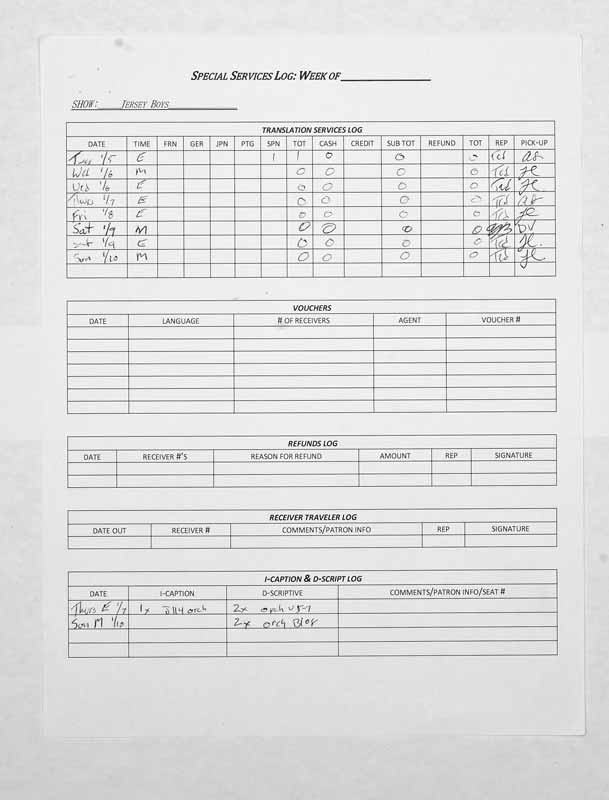 SPECIAL SERVICES LOG: WEEK OF
SHOW: JERSEY BOYS
TRANSLATION SERVICES LOG
DATE TIME FRN GER JPN PTG SPN TOT CASH CREDIT SUB TOT REFUND TOT REP PICK-UP
Tues 1/5 E 1 1 0 0 0 Ted
Wed 1/6 M 0 0 0 0 Ted
Wed 1/6 E 0 0 0 0 Ted
Thurs 1/7 E 0 0 0 0 Ted
Fri 1/8 E 0 0 0 0 Ted
Sat 1/9 M 0 0 0 0 DV
Sat 1/9 E 0 0 0 0 Ted
Sun 1/10 M 0 0 0 0 Ted
VOUCHERS
DATE LANGUAGE # OF RECEIVERS AGENT VOUCHER #
REFUNDS LOG
DATE RECEIVER #'S REASON FOR REFUND AMOUNT REP SIGNATURE
RECEIVER TRAVELER LOG
DATE OUT RECEIVER # COMMENTS/PATRON INFO REP SIGNATURE
I-CAPTION & D-SCRIPT LOG
DATE I-CAPTION D-SCRIPTIVE COMMENTS/PATRON INFO/SEAT #
Thurs E 1/7 1x orch 2x orch
Sun M 1/10 2x orch